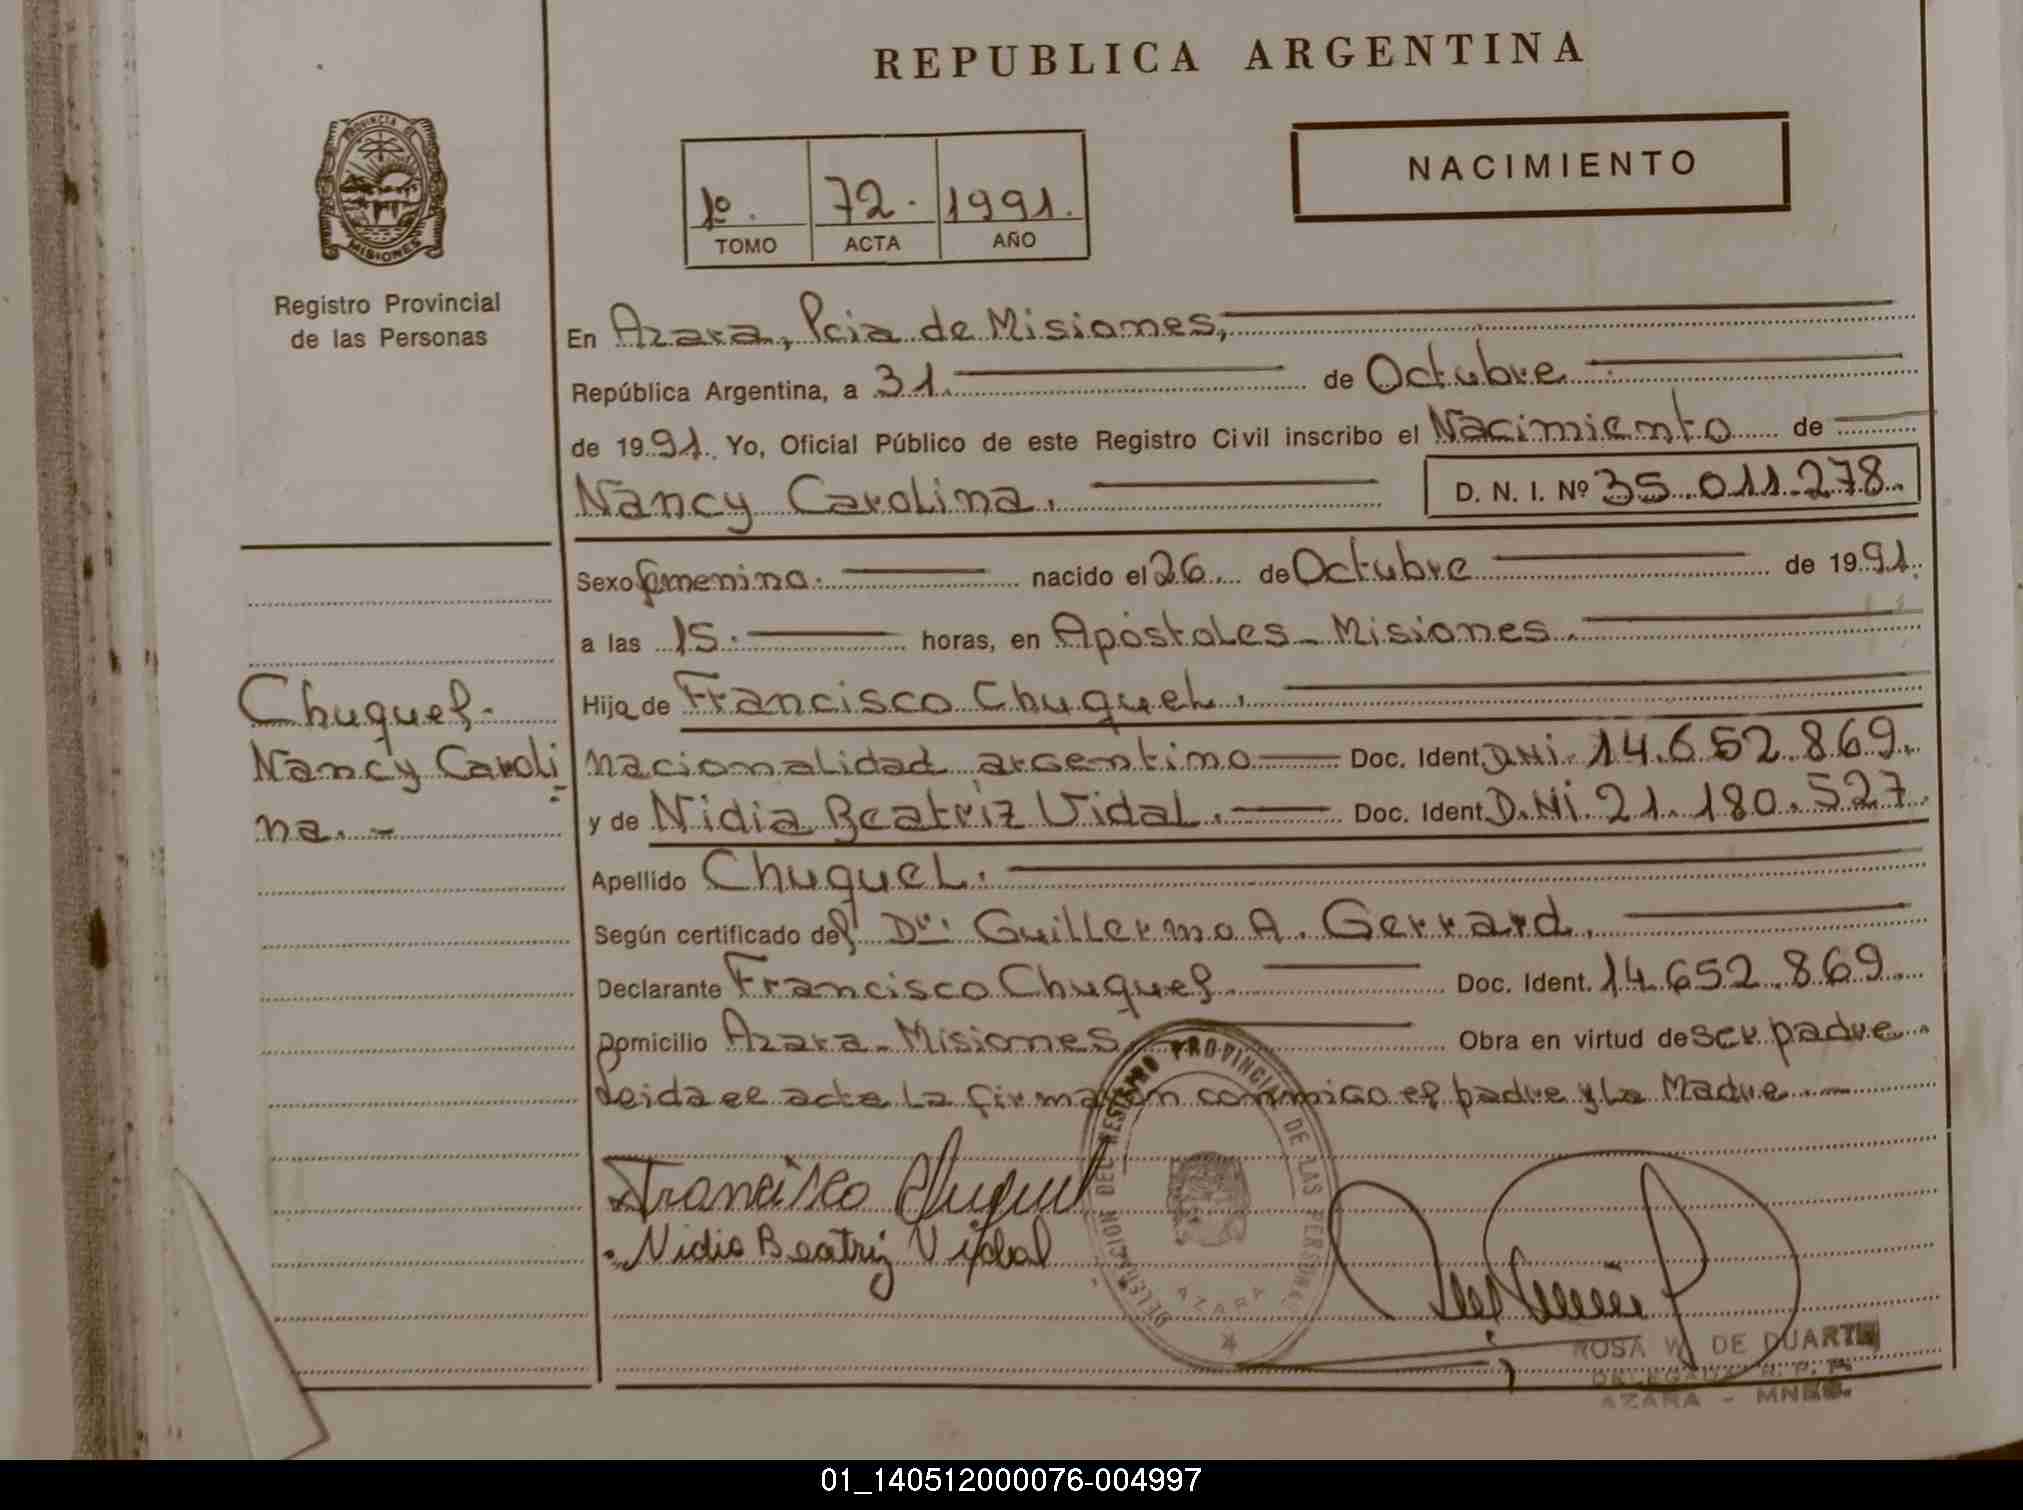 REPUBLICA ARGENTINA
PROVINCIA DE
MISIONES
Registro Provincial
de las Personas
1º. 72. 1991.
TOMO ACTA AÑO
NACIMIENTO
En Azara, Pcia de Misiones,
República Argentina, a 31. de Octubre
de 1991. Yo, Oficial Público de este Registro Civil inscribo el Nacimiento de
Nancy Carolina. D. N. I. Nº 35.011.278.
Sexo femenino. nacido el 26 de Octubre de 1991.
a las 15. horas, en Apóstoles - Misiones.
Chuquel.
Nancy Caroli
na. -
Hija de Francisco Chuquel.
nacionalidad argentino Doc. Ident. D.N.i. 14.652.869.
y de Nidia Beatriz Vidal. Doc. Ident. D.Ni. 21.180.527.
Apellido Chuquel.
Según certificado del Dr. Guillermo A. Gerrard.
Declarante Francisco Chuquel. Doc. Ident. 14.652.869.
Domicilio Azara - Misiones Obra en virtud de ser padre.
Leida el acta la firmaron conmigo el padre y la Madre.
Francisco Chuquel
Nidia Beatriz Vidal
DELEGACION DEL REGISTRO PROVINCIAL DE LAS PERSONAS
AZARA
ROSA W. DE DUARTE
DELEGADA R. P. P.
AZARA - MNES.
01_140512000076-004997